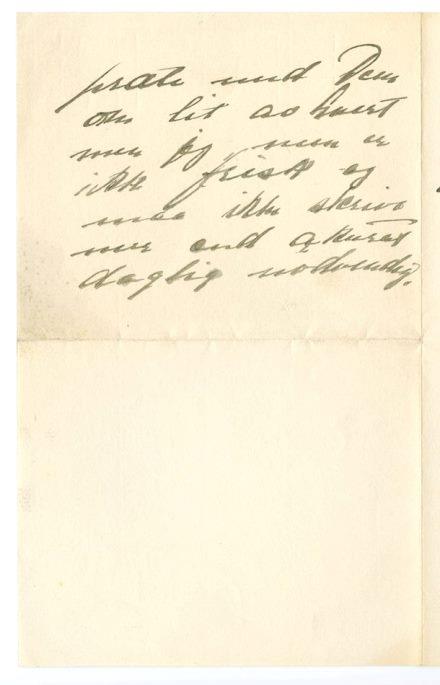 prate med Dem
om lit av hvert
men jeg er
ikke frisk og
maa ikke skrive
mer end akurat
daglig nødvendig.